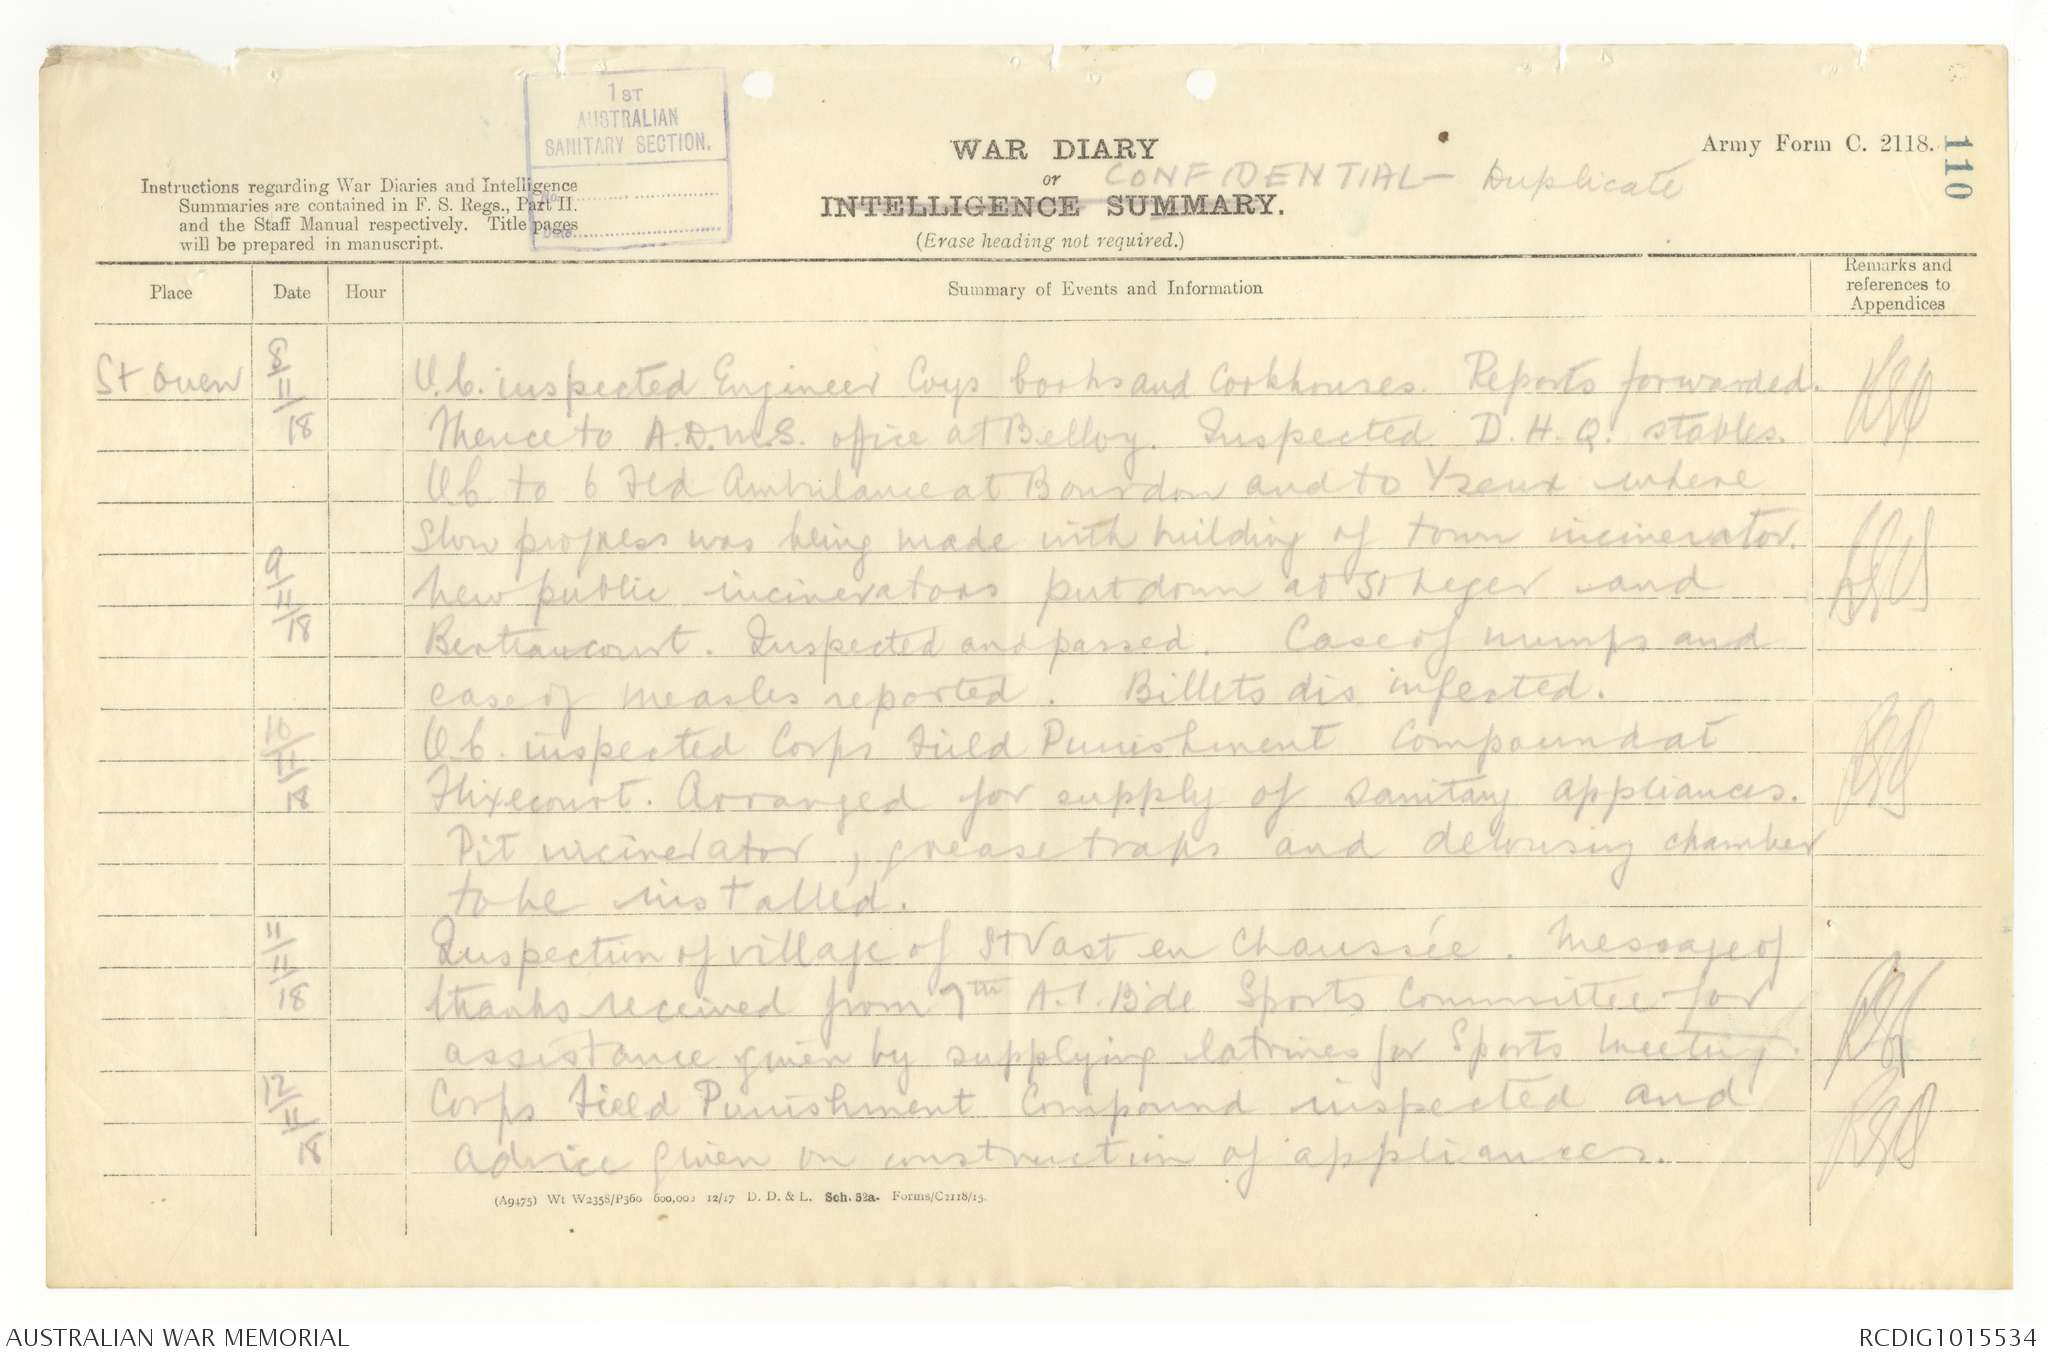 1ST
AUSTRALIAN
SANITARY SECTION.
No.
Date
WAR DIARY
or
INTELLIGENCE SUMMARY.
(Erase heading not required.)
CONFIDENTIAL - Duplicate
Army Form C. 2118.
110
Instructions regarding War Diaries and Intelligence
Summaries are contained in F. S. Regs., Part II.
and the Staff Manual respectively. Title pages
will be prepared in manuscript.
Place Date Hour Summary of Events and Information Remarks and references to Appendices
St Ouen 8/11/18 O.C. inspected Engineer Coys books and Cookhouses. Reports forwarded.
Thence to A.D.M.S. office at Belloy. Inspected D.H.Q. stables.
O.C to 6 Fld Ambulance at Bourdon and to Yzeux where
slow progress was being made with building of town incinerator.
9/11/18 New public incinerators put down at St Leger and
Berteaucourt. Inspected and passed. Case of mumps and
case of measles reported. Billets disinfected.
10/11/18 O.C. inspected Corps Field Punishment Compound at
Flixecourt. Arranged for supply of sanitary appliances.
Pit incinerator, grease traps and delousing chamber
to be installed.
11/11/18 Inspection of village of St Vast en Chaussée. Message of
thanks received from 7th A.I. Bde Sports Committee for
assistance given by supplying latrines for Sports Meeting.
12/11/18 Corps Field Punishment Compound inspected and
advice given on construction of appliances.
(A9475) Wt W2358/P360 600,000 12/17 D. D. & L. Sch. 52a. Forms/C2118/15.
AUSTRALIAN WAR MEMORIAL
RCDIG1015534